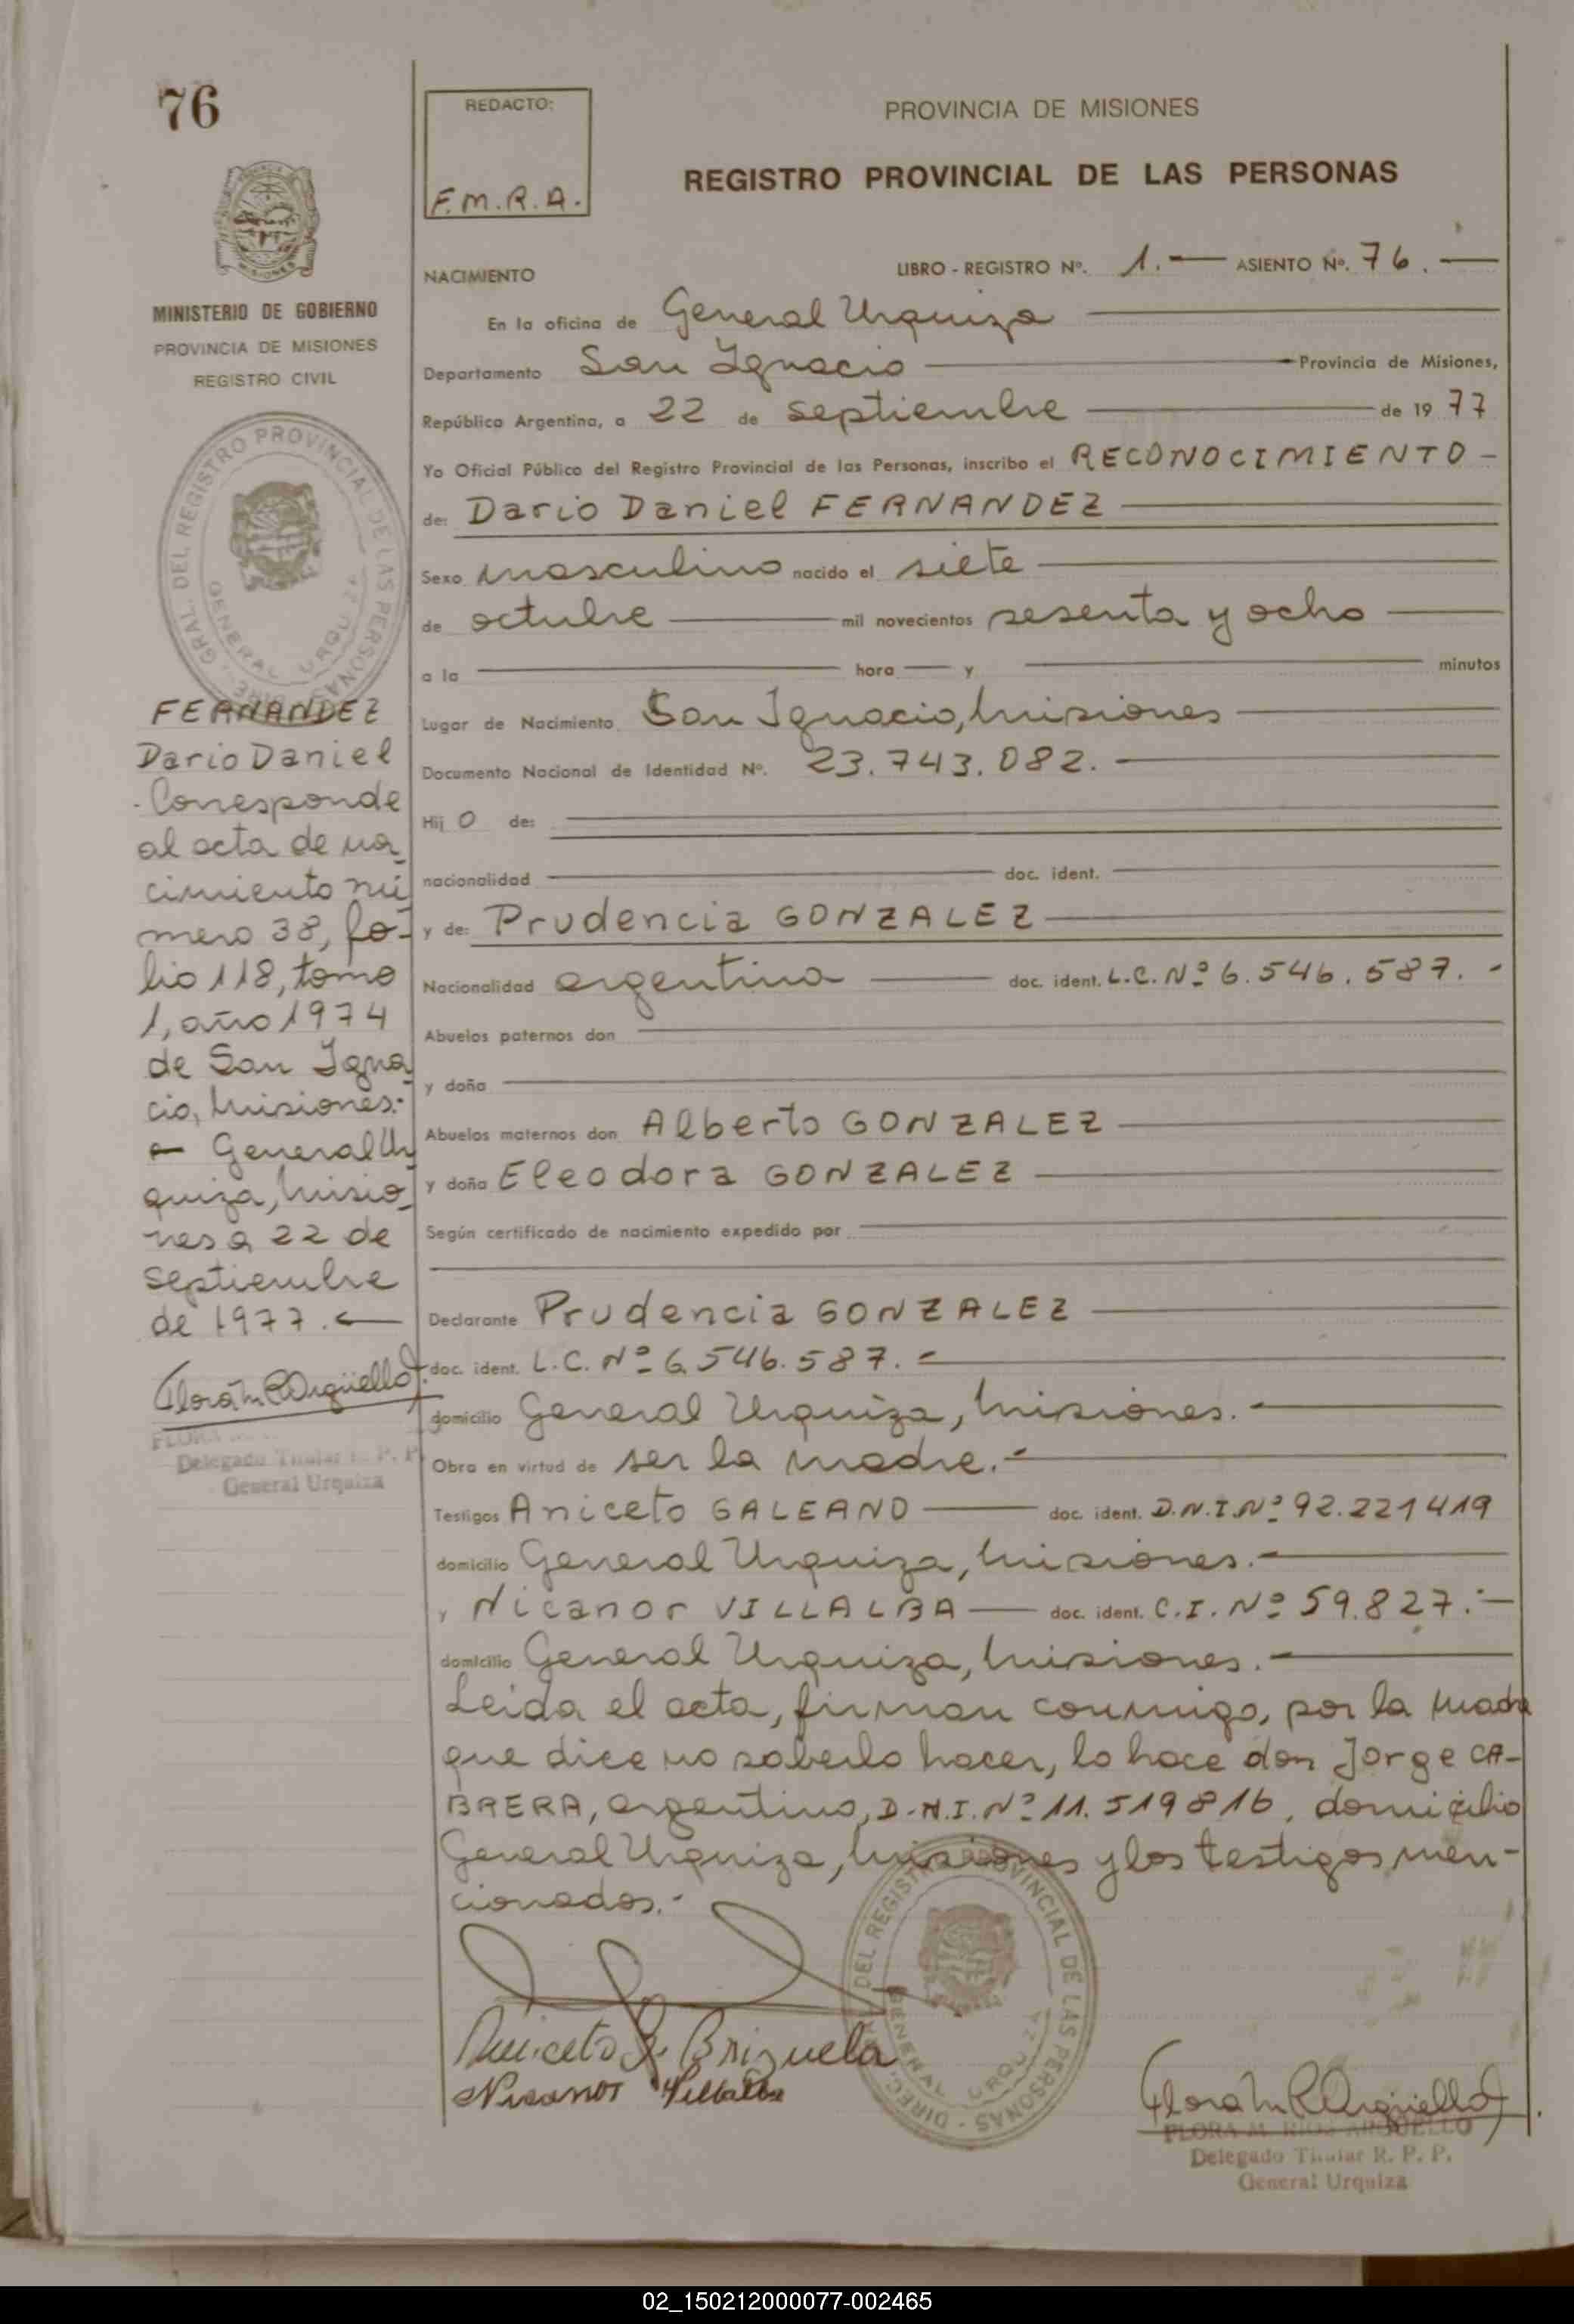 76
REDACTO:
F.M.R.A.
PROVINCIA DE MISIONES
REGISTRO PROVINCIAL DE LAS PERSONAS
MINISTERIO DE GOBIERNO
PROVINCIA DE MISIONES
REGISTRO CIVIL
NACIMIENTO
LIBRO - REGISTRO Nº. 1.- ASIENTO Nº. 76.
En la oficina de General Urquiza
Departamento San Ignacio Provincia de Misiones,
República Argentina, a 22 de septiembre de 1977
Yo Oficial Público del Registro Provincial de las Personas, inscribo el RECONOCIMIENTO -
de: Dario Daniel FERNANDEZ
Sexo masculino nacido el siete
de octubre mil novecientos sesenta y ocho
a la hora y minutos
Lugar de Nacimiento San Ignacio, Misiones
Documento Nacional de Identidad Nº. 23.743.082.
Hij o de:
nacionalidad doc. ident.
y de: Prudencia GONZALEZ
Nacionalidad argentina doc. ident. L.C. Nº 6.546.587. -
Abuelos paternos don
y doña
Abuelos maternos don Alberto GONZALEZ
y doña Eleodora GONZALEZ
Según certificado de nacimiento expedido por
Declarante Prudencia GONZALEZ
doc. ident. L.C. Nº 6.546.587. -
domicilio General Urquiza, Misiones. -
Obra en virtud de ser la madre. -
Testigos Aniceto GALEANO doc. ident. D.N.I. Nº 92.221419
domicilio General Urquiza, Misiones. -
y Nicanor VILLALBA doc. ident. C.I. Nº 59.827. -
domicilio General Urquiza, Misiones. -
Leida el acta, firman conmigo, por la madre
que dice no saberlo hacer, lo hace don Jorge CA-
BRERA, argentino, D.N.I. Nº 11.519816, domicilio
General Urquiza, Misiones y los testigos men-
cionados. -
FERNANDEZ
Dario Daniel
- Corresponde
al acta de na
cimiento nú
mero 38, fo-
lio 118, tomo
1, año 1974
de San Igna
cio, Misiones.-
General Ur
quiza, Misio
nes a 22 de
septiembre
de 1977.
Flora M R Argüello
FLORA
Delegado Titular R. P. P.
General Urquiza
DIREC. GRAL. DEL REGISTRO PROVINCIAL DE LAS PERSONAS
GENERAL URQUIZA
Brizuela
Nicanor Villalba
DEL REGISTRO PROVINCIAL DE LAS PERSONAS - DIREC.
GENERAL URQUIZA
Flora M R Argüello
FLORA M. RIOS ARGUELLO
Delegado Titular R. P. P.
General Urquiza
02_150212000077-002465